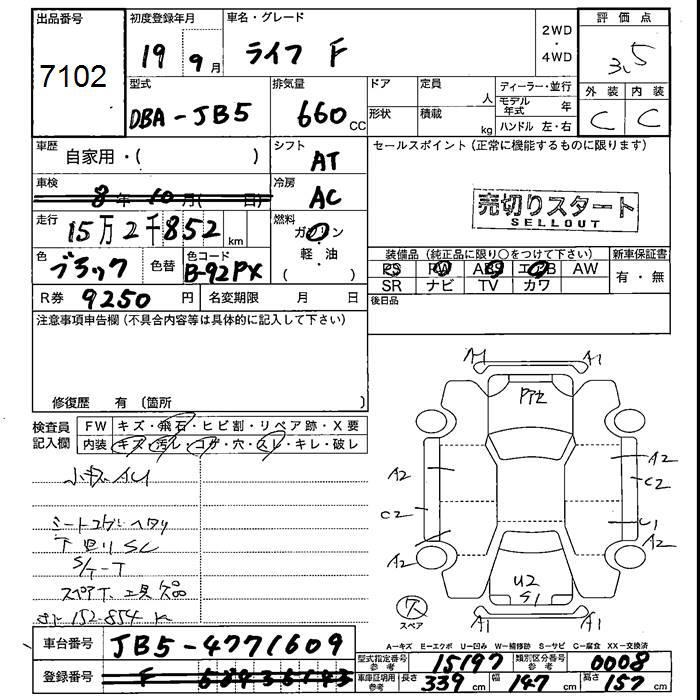 出品番号
7102
初度登録年月
19 9月
車名・グレード
ライフ F
2WD
・
4WD
評価点
3.5
外装 内装
C C
型式
DBA-JB5
排気量
660 CC
ドア
形状
定員 人
積載 kg
ディーラー・並行
モデル年式 年
ハンドル 左・右
車歴
自家用・( )
シフト
AT
車検
8年 10月( 日)
冷房
AC
走行
15万2千852 km
燃料
ガソリン
軽・油
( )
色
ブラック
色替
色コード
B-92PX
R券 9250 円
名変期限 月 日
セールスポイント(正常に機能するものに限ります)
売切りスタート
SELLOUT
装備品(純正品に限り○をつけて下さい)
新車保証書
PS PW ABS エアB AW
SR ナビ TV カワ
有・無
後日品
注意事項申告欄(不具合内容等は具体的に記入して下さい)
修復歴 有(箇所 )
検査員
記入欄
FW キズ・飛石・ヒビ割・リペア跡・X要
内装 キズ・汚レ・コゲ・穴・スレ・キレ・破レ
シートコゲ ヘタリ
下廻リ SC
S/T-T
スペア欠 工具欠品
152-854 K
A1 A1
PT2
A2 A2
C2 C2
U1
A2 A2
U2
S1
A1 A1
欠
スペア
A-キズ E-エクボ U-凹み W-補修跡 S-サビ C-腐食 XX-交換済
車台番号 JB5-4771609
登録番号
型式指定番号
参考
15197
類別区分番号
参考
0008
車庫証明用
参考
長さ 339 cm 幅 147 cm 高さ 157 cm